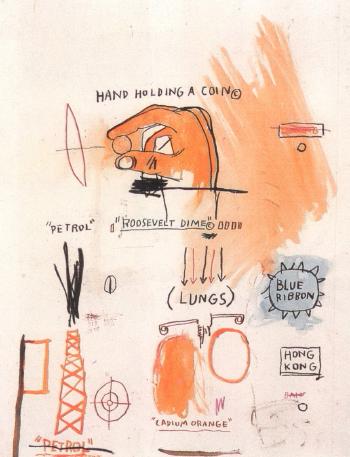 HAND HOLDING A COIN©
"PETROL"
"ROOSEVELT DIME"©
(LUNGS)
BLUE
RIBBON
HONG
KONG
"CADIUM ORANGE"
"PETROL"